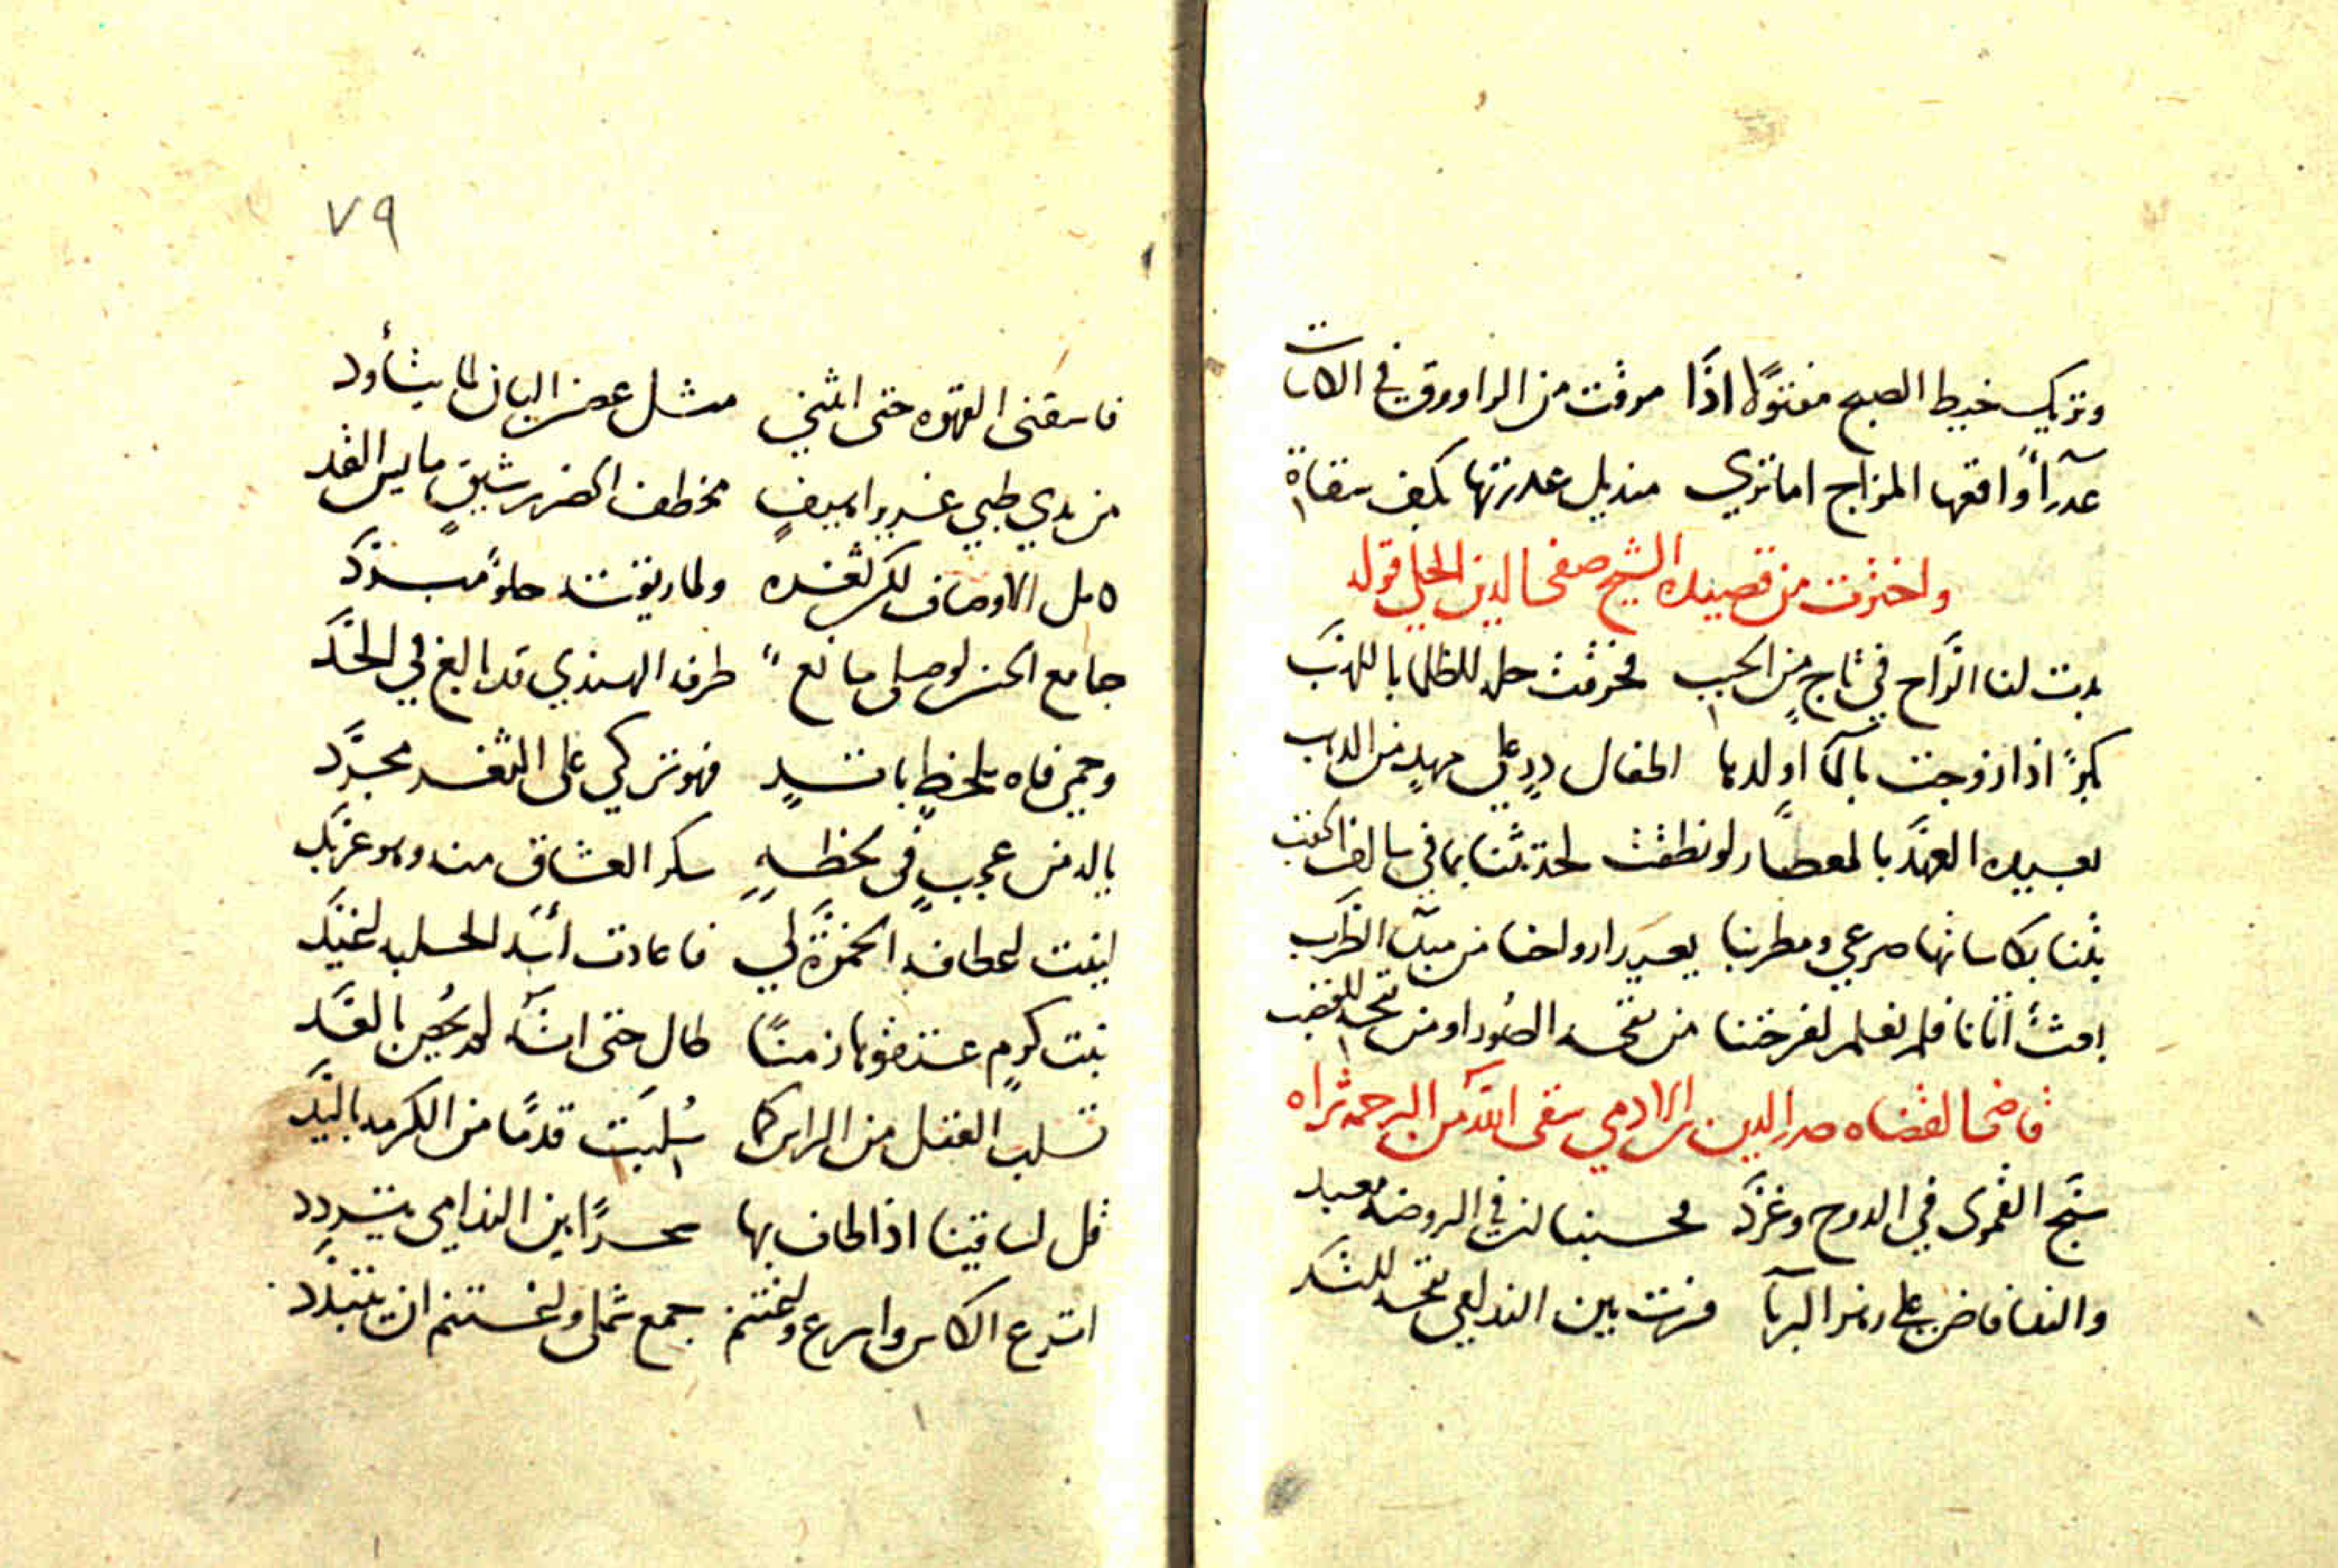 وتريك خيط الصبح مفتولا اذا مرقت من الراووق في الكاسات
عذراً واقعها المزاج اما تري منديل عذرتها بكف سقاة
واخترت من قصيدة الشيخ صفي الدين الحلي قوله
بدت لنا الرَّاح في تاجٍ من الحبب فخرقت حلة الظلما باللهب
بكرٌ اذا زوجت بالمآ اولدها اطفال درٍ علي مهدٍ من الذهب
بعيدة العهد بالمعصار لو نطقت لحدثتنا بما في سالف الحقب
بتنا بكاساتها صرعي ومطربنا يعيد ارواحنا من مبدا الطرب
بعث اتانا فلم نعلم لفرحتنا من نفخة الصور او من نفخة القصب
قاضي القضاه صدر الدين بن الادمي سقي الله من الرحمة ثراه
سجع القمري في الدوح وغرَّد فحسبنا انه في الروضة معبد
والندا فاض علي زهر الربآ فزهت بين الندامي
فاسقني القهوه حتي انثني مثل غصن البان لما يتأود
من يدي ظبي غرير اهيفٍ مخطف الخصر رشيقٍ مايس القد
كامل الاوصاف لكن ثغره ولمى ريقته حلوٌ مبرَّد
جامع الحسن لوصلي مانع طرفه الهندي قد بالغ في الحد
وحمي فاه بلحظٍ باترٍ فهو تركي علي الثغر مجرَّد
ياله من عجبٍ في لحظه سكر العشاق منه وهو عربد
بنت كرمٍ عتقوها زمناً طال حتي انه لم يحص بالعد
تسلب العقل من الراس كما سُلبت قدماً من الكرمه باليد
قل لساقينا اذا طاف بها سحراً بين الندامي يتردد
اترع الكاس واسرع واغتنم جمع شملي واغتنم ان يتبدد
٧٩